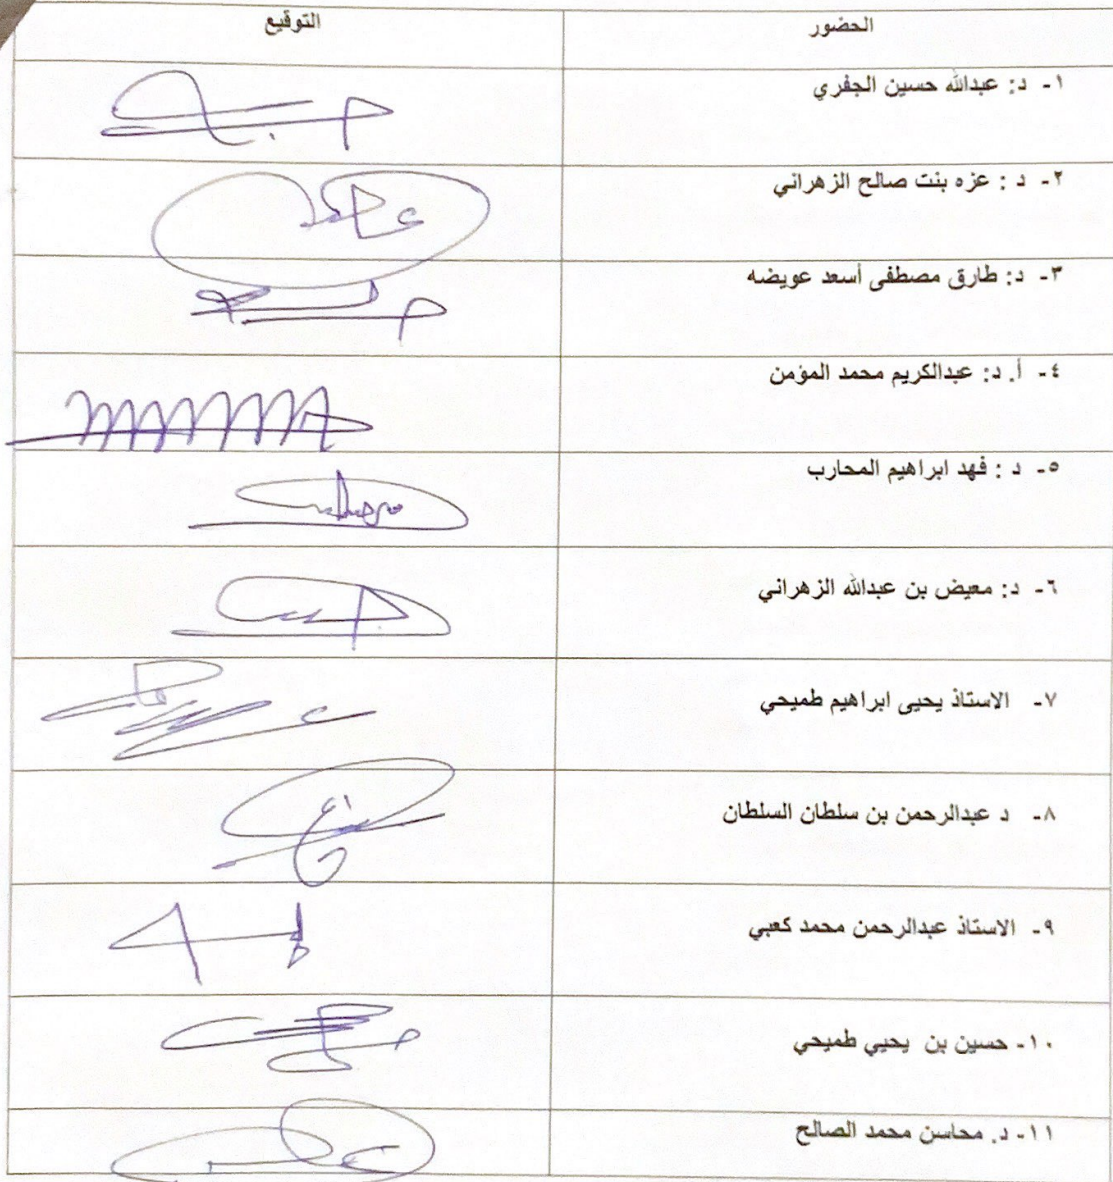 الحضور التوقيع
١- د: عبدالله حسين الجفري
٢- د : عزه بنت صالح الزهراني
٣- د: طارق مصطفى أسعد عويضه
٤- أ. د: عبدالكريم محمد المؤمن
٥- د : فهد ابراهيم المحارب
٦- د: معيض بن عبدالله الزهراني
٧- الاستاذ يحيى ابراهيم طميحي
٨- د عبدالرحمن بن سلطان السلطان
٩- الاستاذ عبدالرحمن محمد كعبي
١٠- حسين بن يحيي طميحي
١١- د. محاسن محمد الصالح